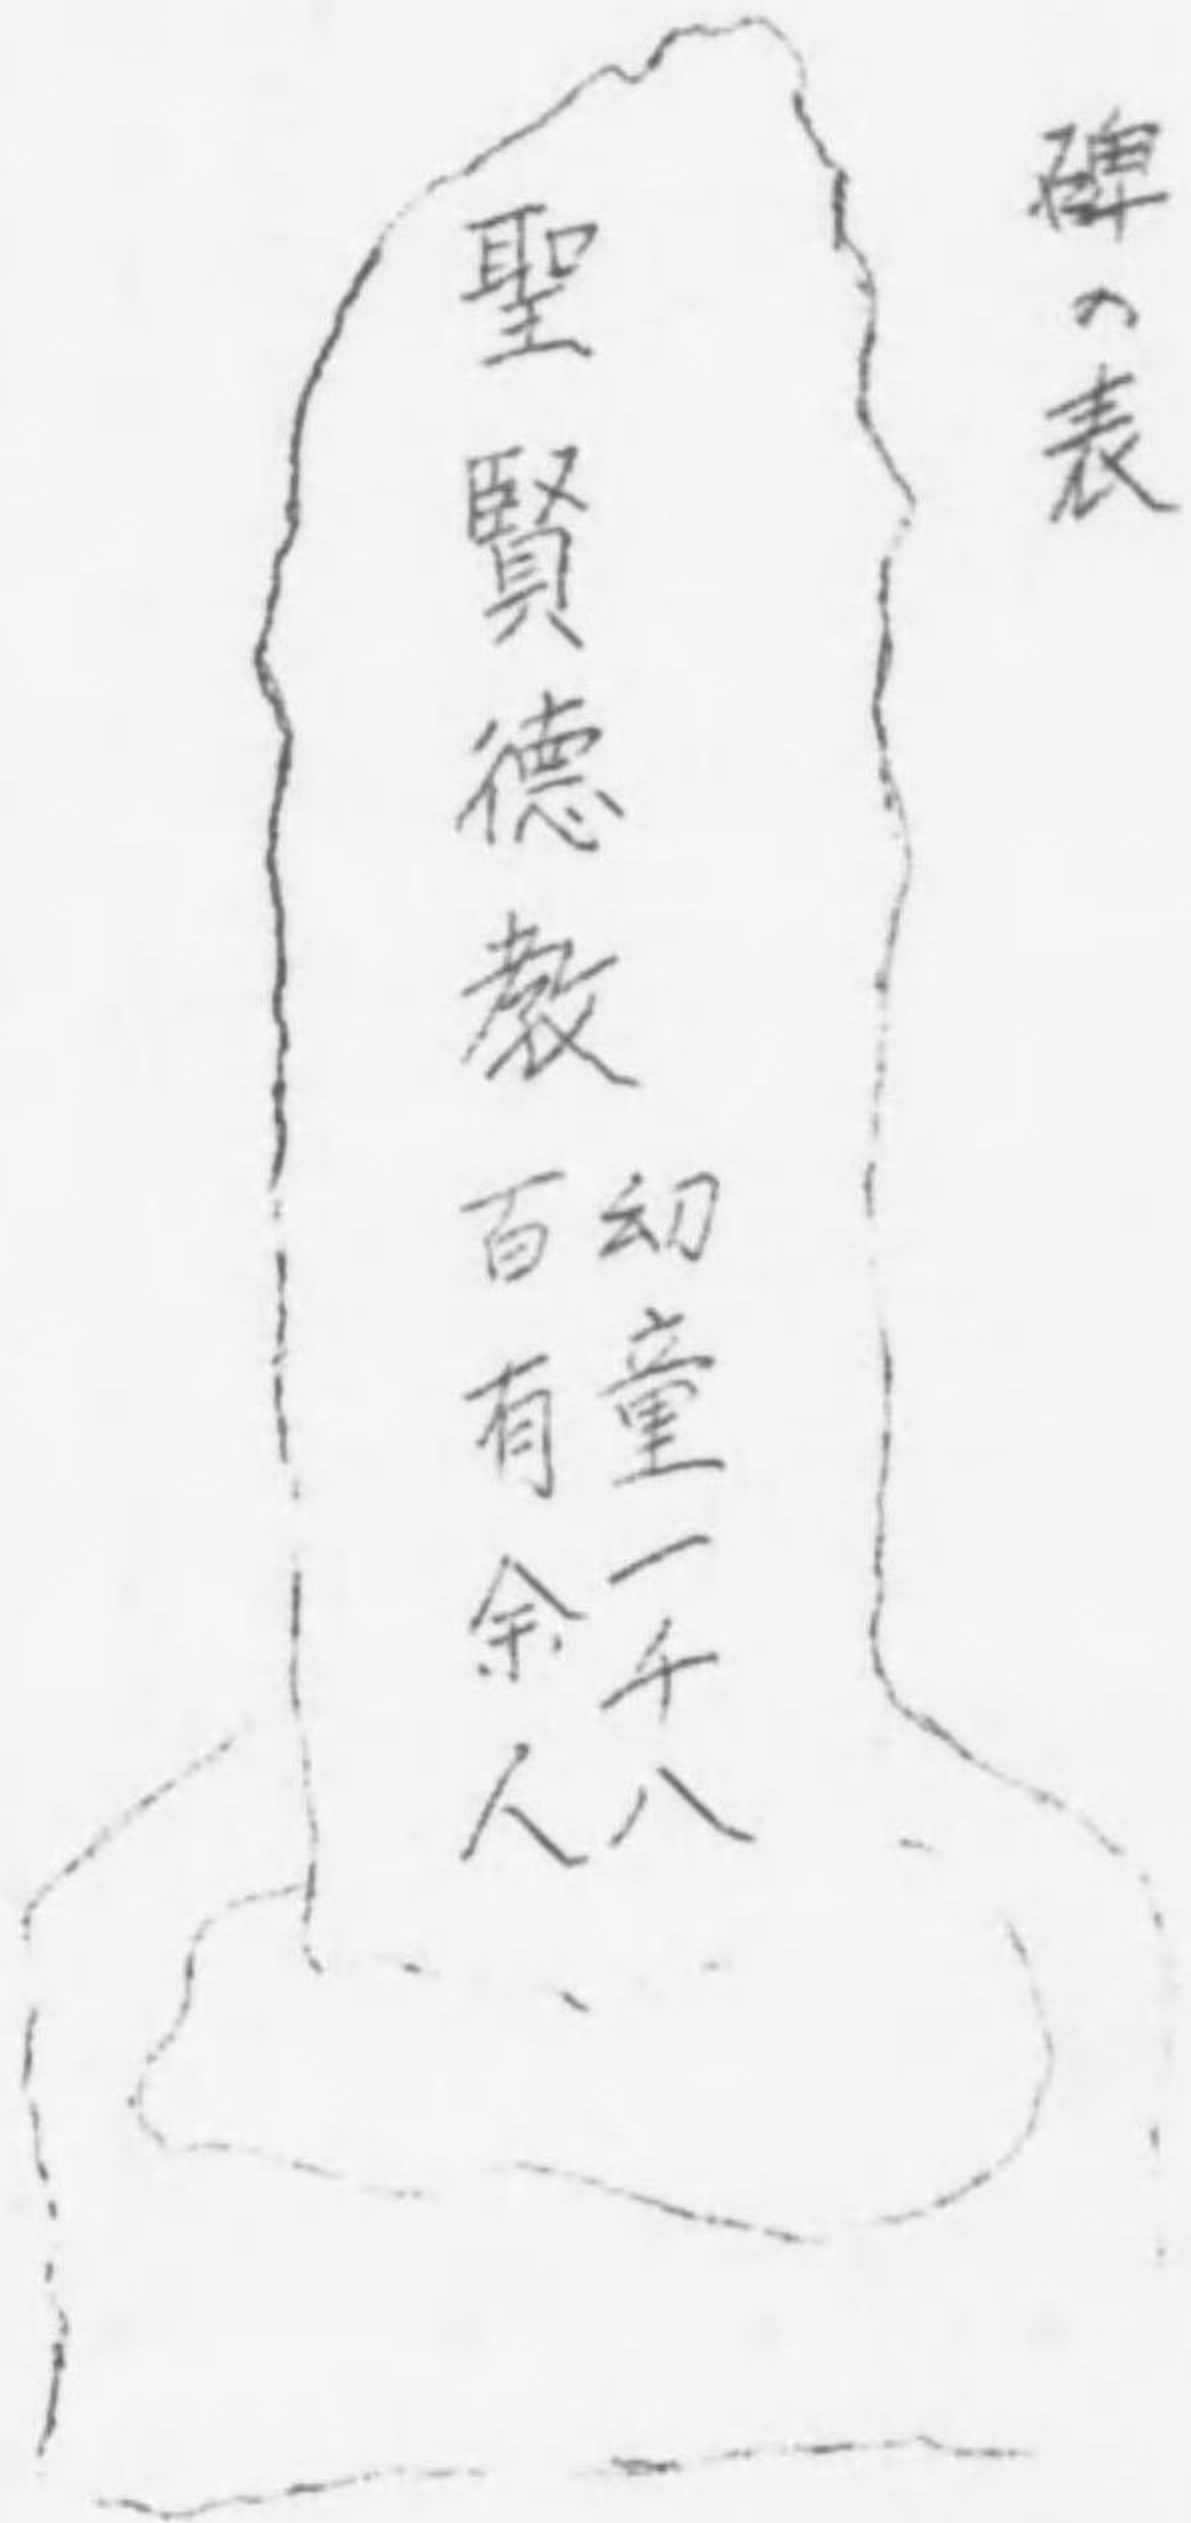 碑の表
聖賢徳教
幼童一千八
百有余人